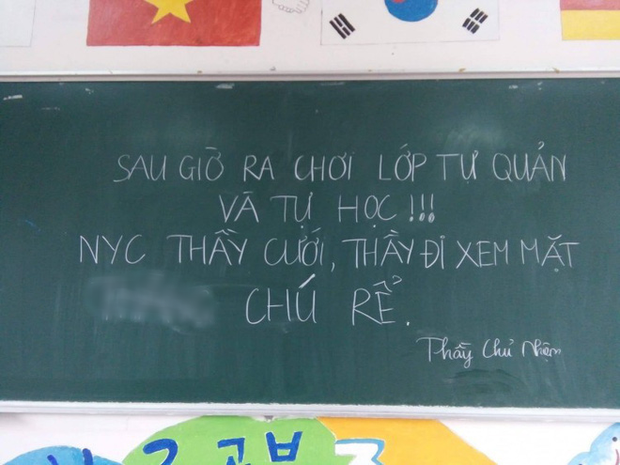 SAU GIỜ RA CHƠI LỚP TỰ QUẢN
VÀ TỰ HỌC !!!
NYC THẦY CƯỚI, THẦY ĐI XEM MẶT
CHÚ RỂ.
Thầy Chủ Nhiệm